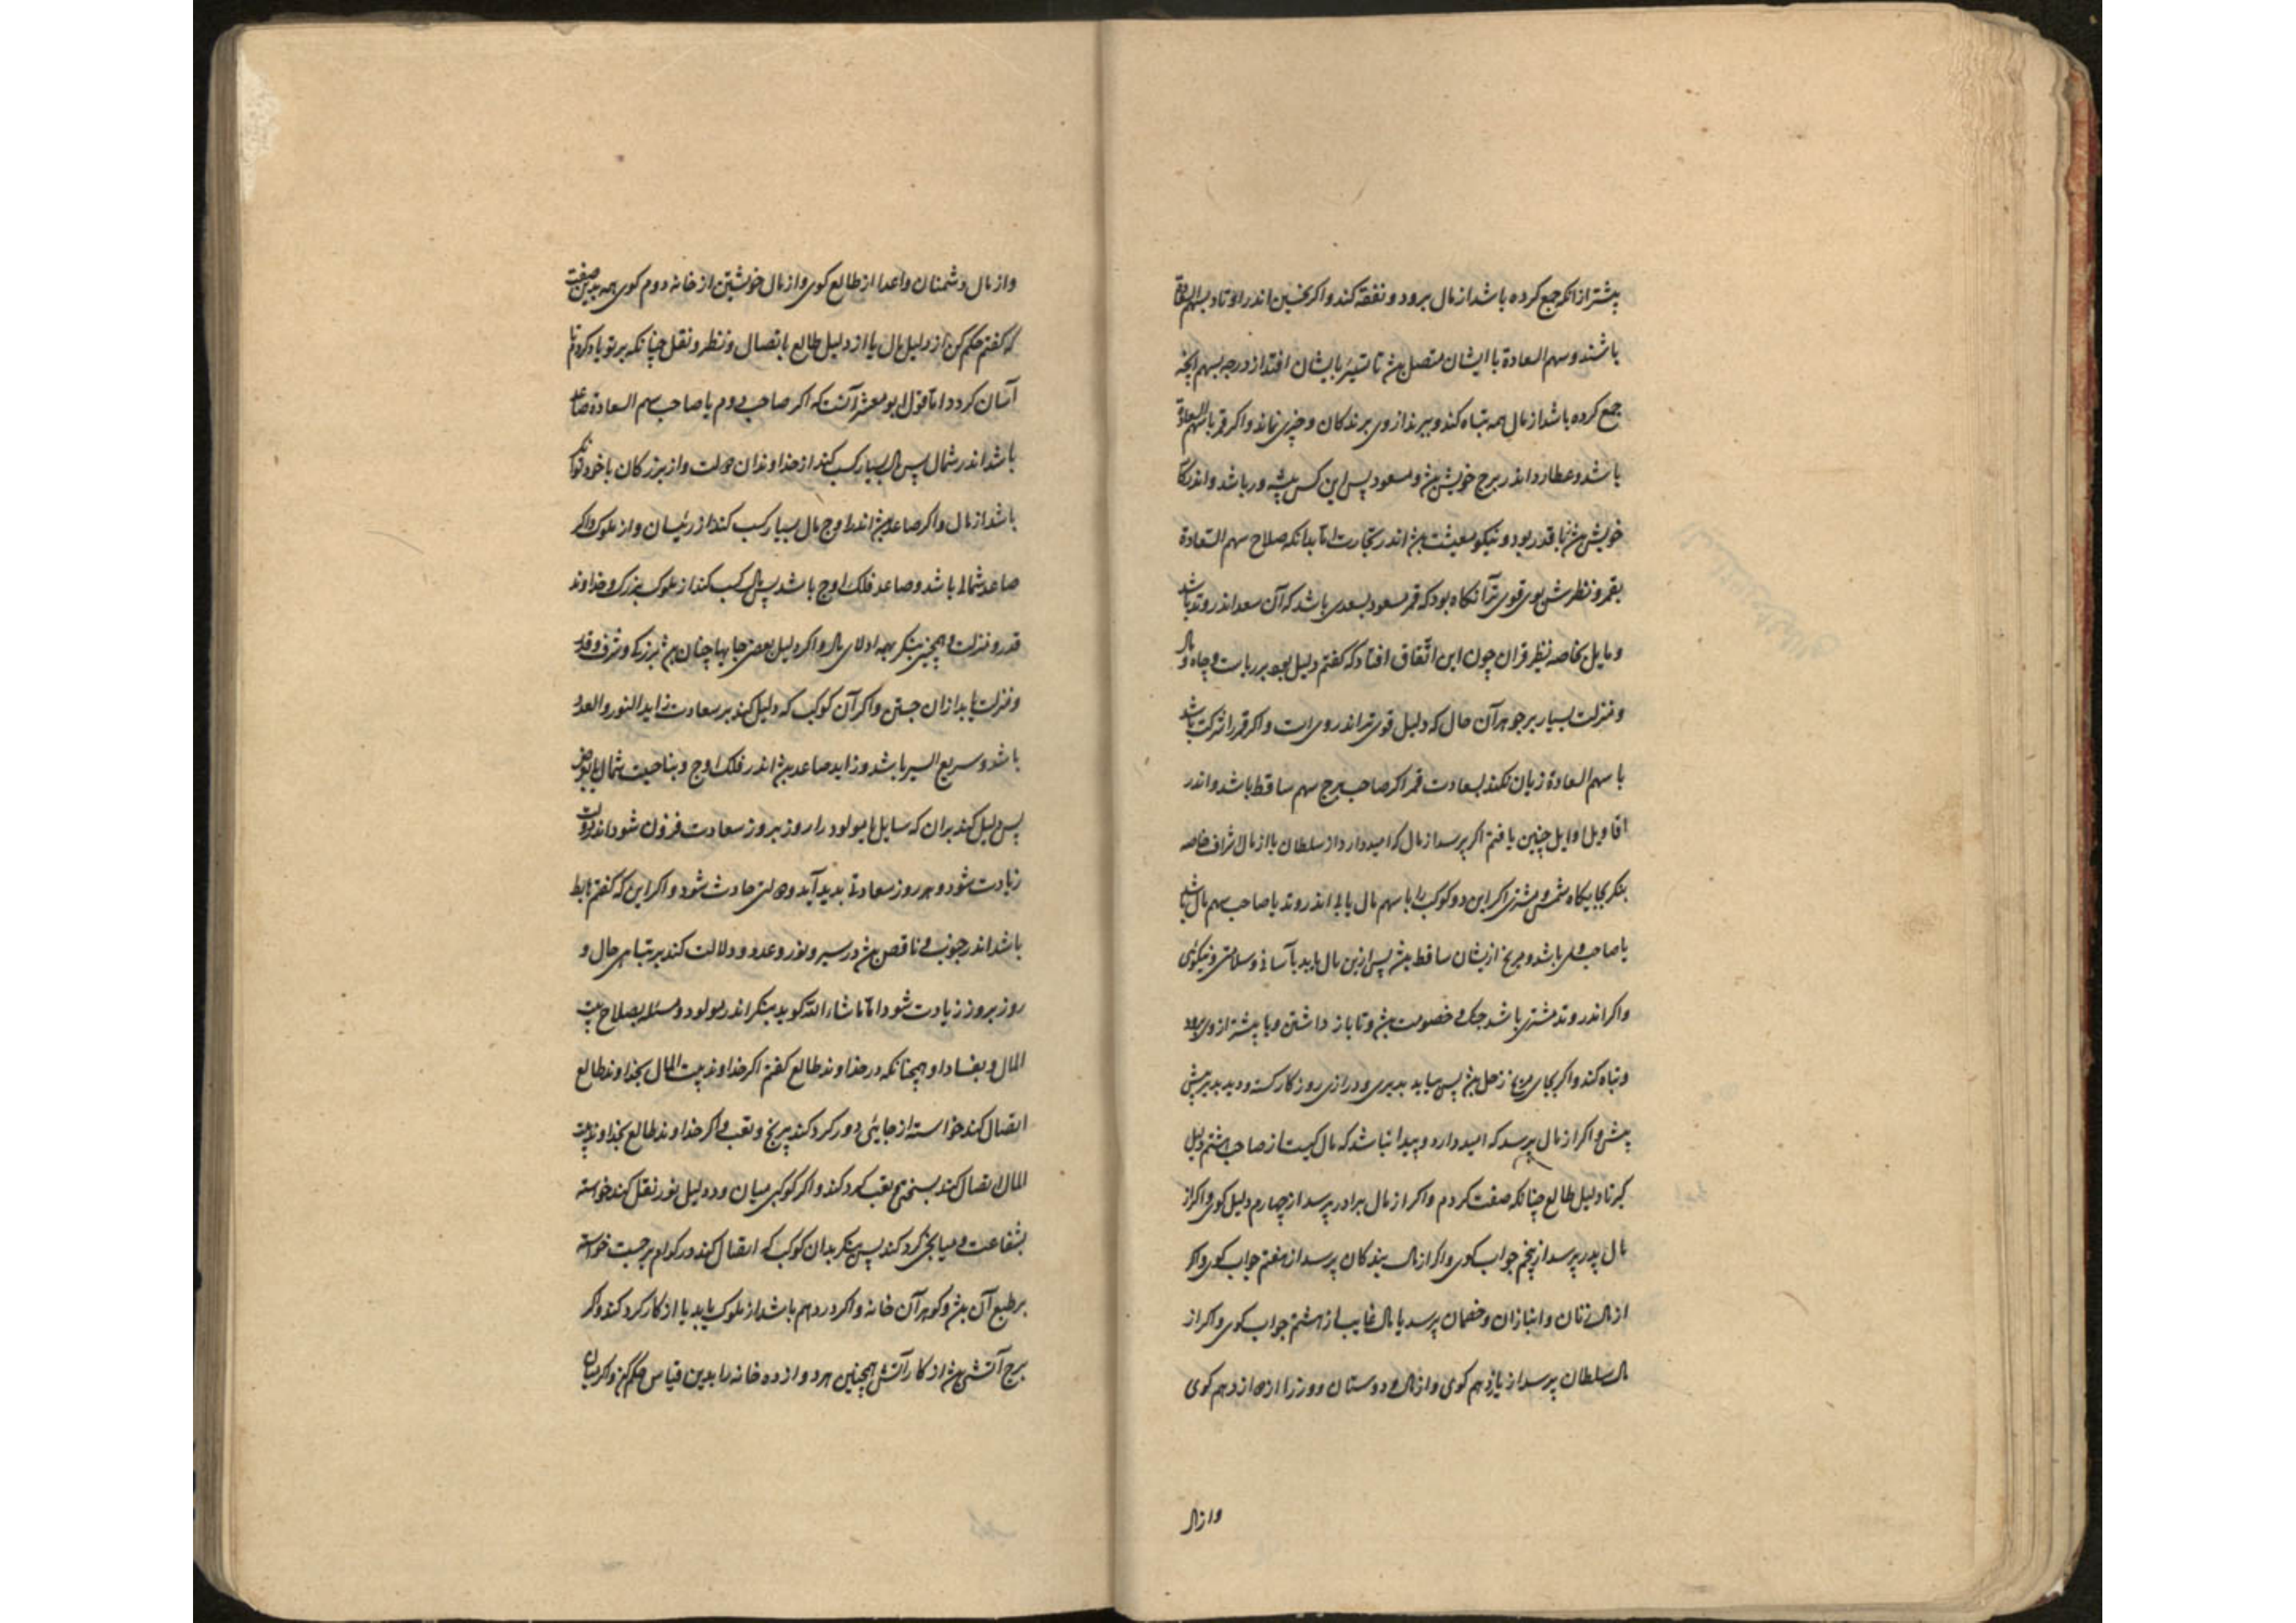 پیشتر از آنکه جمع کرده باشد از مال برود و نفقه کند و اگر نحسین اندر اوتاد سهم السعادة
باشند و سهم السعادة با ایشان متصل بود تا تسییر بایشان افتد از درجه سهم آنچه
جمع کرده باشد از مال همه تباه کند و ببرند از وی برندکان و چیزی نماند و اکر قمر با سهم السعادة
باشد و عطارد اندر برج خویش بود و مسعود پس این کس پیشه ور باشد و اندر کار
خویش با قدر بود و نیکو معیشت بود اندر تجارت اما بدانکه صلاح سهم السعادة
بقمر و نظرش بوی قوی تر آنکاه بود که قمر مسعود بسعدی باشد که آن سعد اندر وتد باشد
و مایل بخاصه نظر قران چون این اتفاق افتاد که کفتم دلیل بود بر ریاست و جاه و مال
و منزلت بسیار بر جوهر آن حال که دلیل قوی تر اندر وی است و اکر قمر را شرکت باشد
با سهم السعادة زیان نکند بسعادت قمر اکر صاحب برج سهم ساقط باشد و اندر
اقاویل اوایل چنین یافتم اکر پرسد از مال که امید دارد از سلطان یا از مال اشراف خاصه
بنکر بجایکاه شمس و مشتری اکر این دو کوکب را با سهم مال یابی اندر وتد یا صاحب سهم مال باشد
یا صاحب باشد و مریخ ازیشان ساقط بود پس ازین مال یابد بآسانی و سلامتی و نیکوئی
و اکر اندر وتد مشتری باشد جنک و خصومت بود و تا باز داشتن و یا پیشتر از وی برود
و تباه کند و اکر بجای مریخ زحل بود پس بیابد بدیری و درازی روزکار کسته و دیر پیش
پیش و اکر از مال پرسد که امید دارد و پیدا نباشد که مال کیست از صاحب هشتم دلیل
کیر تا دلیل طالع چنانکه صفت کردم و اکر از مال برادر پرسد از چهارم دلیل کوی و اکر از
مال پدر پرسد از پنجم جواب کوی و اکر از مال بندکان پرسد از هفتم جواب کوی و اکر
از مال زنان و انبازان و خصمان پرسد یا مال غایب از هشتم جواب کوی و اکر از
مال سلطان پرسد از یازدهم کوی و از مال دوستان و وزرا از دوازدهم کوی
و از مال
و از مال دشمنان و اعدا از طالع کوی و از مال خویشتن از خانه دوم کوی همه بدین صفت
که کفتم حکم کن از دلیل مال یا از دلیل طالع باتصال و نظر و نقل چنانکه بر تو یاد کردم تا
آسان کردد اما قول ابو معشر آنست که اکر صاحب دوم یا صاحب سهم السعادة صاعد
باشد اندر شمال پس مال بسیار کسب کند از خداوندان دولت و از بزرکان با خود توانکر
باشد از مال و اکر صاعد بود اندر اوج مال بسیار کسب کند از رئیسان و از ملوک و اکر
صاعد شمالی باشد و صاعد فلک اوج باشد پس مال کسب کند از ملوک بزرک و خداوند
قدر و منزلت و همچنین بنکر بهمه ادلای مال و اکر دلیل بعضی جایها چنان بود بزرکی و شرف و قدر
و منزلت باید ازان جستن و اکر آن کوکب که دلیل کند بر سعادت زاید النور و العدد
باشد و سریع السیر باشد و زاید صاعد بود اندر فلک اوج و بناحیت شمال
پس دلیل کند بران که سایل یا مولود را روز بروز سعادت فزون شود و اندر دولت
زیادت شود و هر روز سعادتی بدید آید و دولتی حادث شود و اکر این که کفتم هابط
باشد اندر جنوب و ناقص بود در سیر و نور و عدد و دلالت کند بر تباهی حال و
روز بروز زیادت شود اما ما شاء الله کوید بنکر اندر مولود و مسئله بصلاح بیت
المال و بفساد او همچنانکه در خداوند طالع کفتم اکر خداوند بیت المال بخداوند طالع
اتصال کند خواسته از جایی دور کرد کند برنج و تعب و اکر خداوند طالع بخداوند بیت
المال اتصال کند بسختی و تعب کرد کند و اکر کوکبی میان دو دلیل نور نقل کند خواسته
بشفاعت و میانجی کرد کند پس بنکر بدان کوکب که اتصال کند در کدام برجست خواسته
بر طبع آن بود و کوهر آن خانه و اکر در دهم باشد از ملوک یابد یا از کار کرد کند و اکر
برج آتشی بود از کار آتش همچنین هر دوازده خانه را بدین قیاس حکم کن و اکر میان